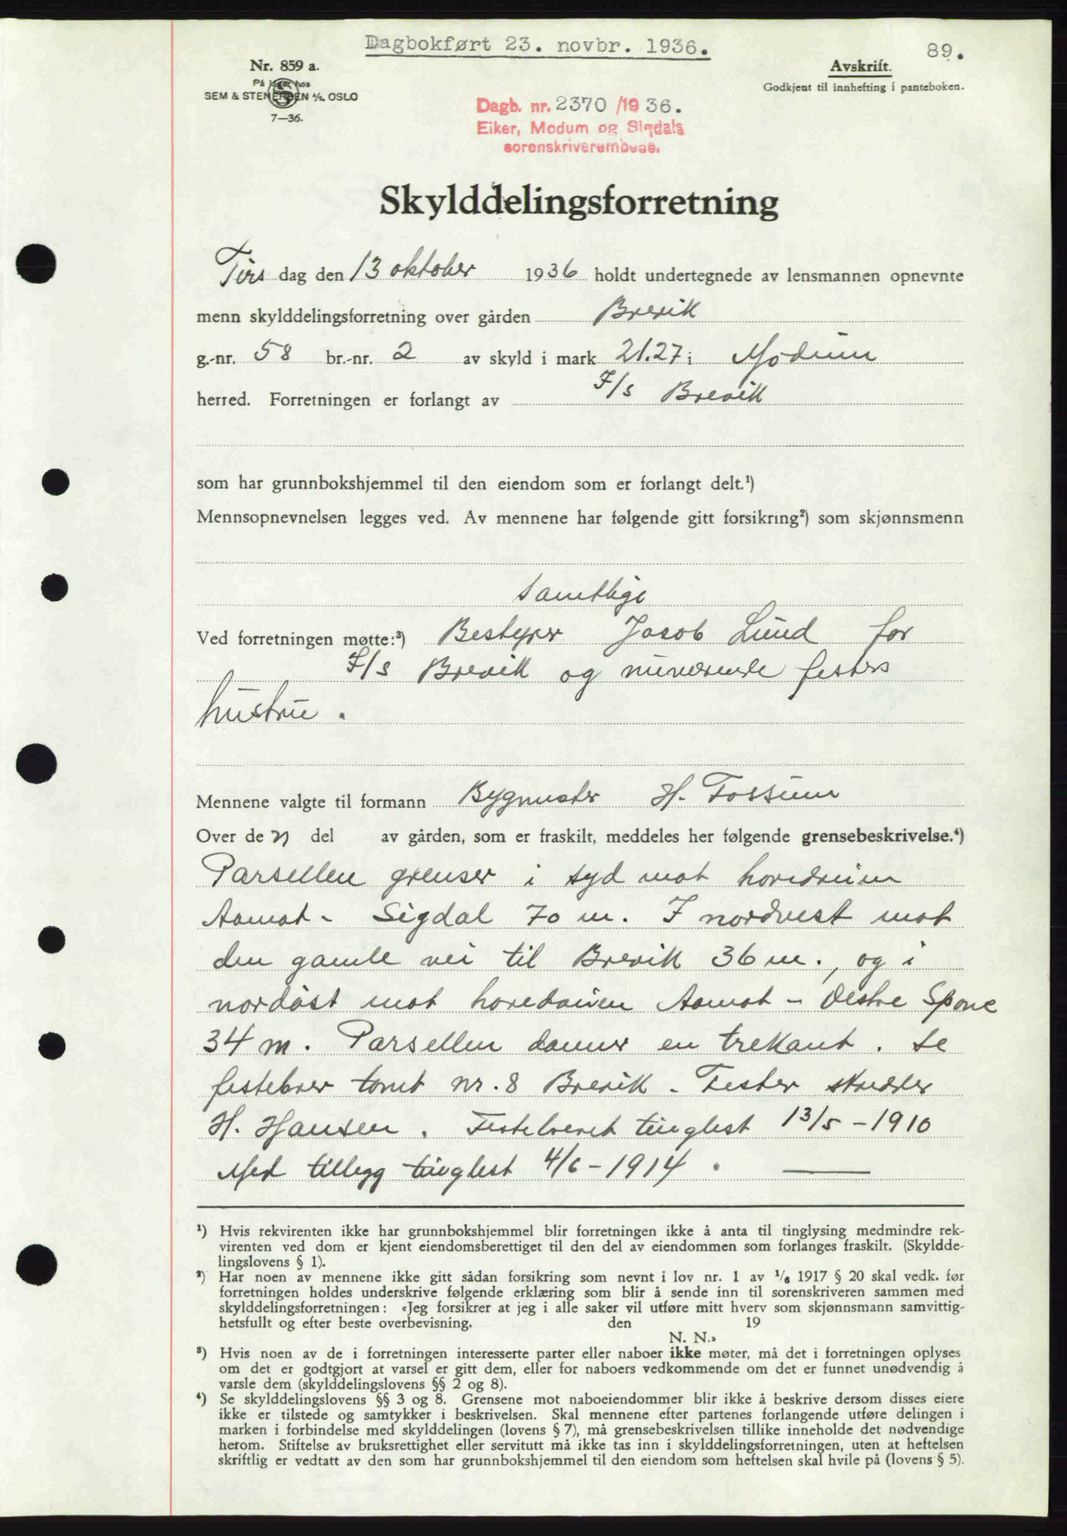 Dagbokført 23. novbr. 1936.
89.
Nr. 859 a.
På lager hos
SEM & STENERSEN A/S, OSLO
7—36.
Avskrift.
Godkjent til innhefting i panteboken.
Dagb. nr. 2370 /19 36.
Eiker, Modum og Sigdals
sorenskriverembede.
Skylddelingsforretning
Tirs dag den 13 oktober 1936 holdt undertegnede av lensmannen opnevnte
menn skylddelingsforretning over gården Brevik
g.-nr. 58 br.-nr. 2 av skyld i mark 21.27 i Modum
herred. Forretningen er forlangt av I/s Brevik
som har grunnbokshjemmel til den eiendom som er forlangt delt.¹)
Mennsopnevnelsen legges ved. Av mennene har følgende gitt forsikring²) som skjønnsmenn
samtlige
Ved forretningen møtte:³) Bestyrer Jacob Lund for
I/s Brevik og nuværende festers
hustru.
Mennene valgte til formann Bygmester H. Fossum
Over de n del av gården, som er fraskilt, meddeles her følgende grensebeskrivelse.⁴)
Parsellen grenser i syd mot hovedveien
Aamot - Sigdal 70 m. I nordvest mot
den gamle vei til Brevik 36 m., og i
nordöst mot hovedveien Aamot - Vestre Spone
34 m. Parsellen danner en trekant. Se
festebrev tomt nr. 8 Brevik. Fester skredder
H. Hansen. Festebrevet tinglest 13/5 - 1910
Med tillegg tinglest 4/6 - 1914.
¹) Hvis rekvirenten ikke har grunnbokshjemmel blir forretningen ikke å anta til tinglysing medmindre rek-
virenten ved dom er kjent eiendomsberettiget til den del av eiendommen som forlanges fraskilt. (Skyldde-
lingslovens § 1).
²) Har noen av mennene ikke gitt sådan forsikring som nevnt i lov nr. 1 av ¹/₆ 1917 § 20 skal vedk. før
forretningen holdes underskrive følgende erklæring som blir å sende inn til sorenskriveren sammen med
skylddelingsforretningen: «Jeg forsikrer at jeg i alle saker vil utføre mitt hverv som skjønnsmann samvittig-
hetsfullt og efter beste overbevisning. den 19
N. N.»
³) Hvis noen av de i forretningen interesserte parter eller naboer ikke møter, må det i forretningen oplyses
om det er godtgjort at varsel er gitt dem, eller for naboers vedkommende om det er funnet unødvendig å
varsle dem (skylddelingslovens §§ 2 og 8).
⁴) Se skylddelingslovens §§ 3 og 8. Grensene mot naboeiendommer blir ikke å beskrive dersom disses eiere
ikke er tilstede og samtykker i beskrivelsen. Skal mennene efter partenes forlangende utføre delingen i
marken i forbindelse med skylddelingen (lovens § 7), må grensebeskrivelsen tillike inneholde det nødvendige
herom. Stiftelse av bruksrettighet eller servitutt må ikke tas inn i skylddelingsforretningen, uten at heftelsen
skriftlig er vedtatt av den som har grunnbokshjemmel til den eiendom som heftelsen skal hvile på (lovens § 5).